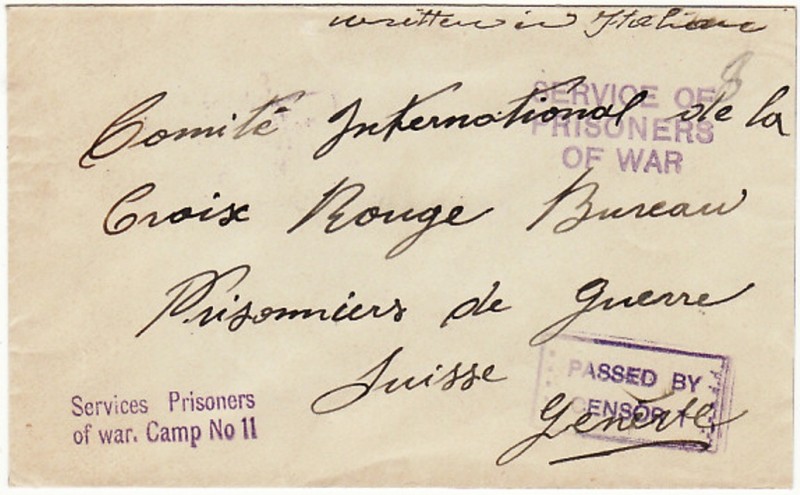 written in Italian
SERVICE OF
PRISONERS
OF WAR
Comité International de la
Croix Rouge Bureau
Prisonniers de Guerre
Suisse
Genève
PASSED BY
CENSOR
Services Prisoners
of war. Camp No 11